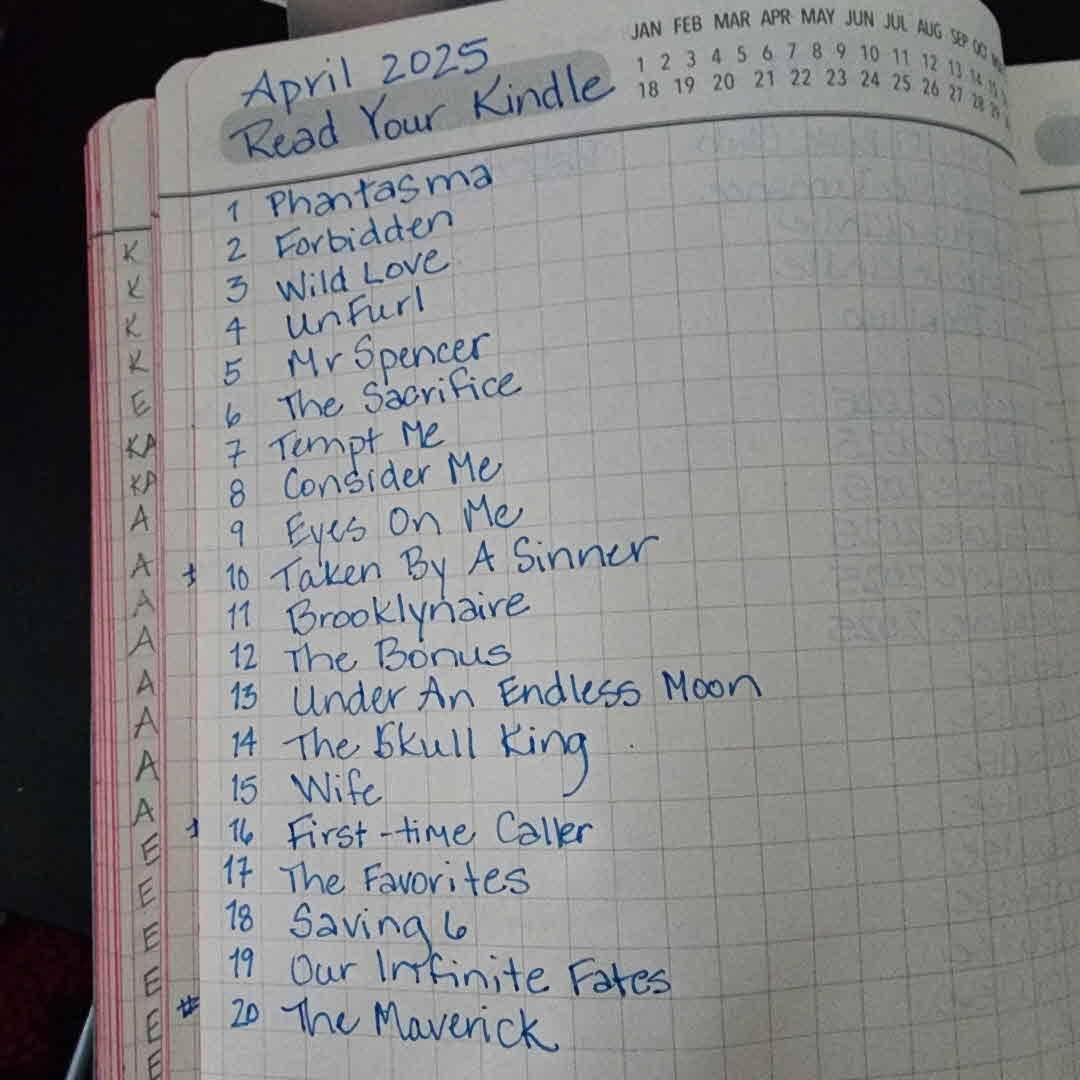 JAN FEB MAR APR MAY JUN JUL AUG SEP OCT
1 2 3 4 5 6 7 8 9 10 11 12 13 14 15
18 19 20 21 22 23 24 25 26 27 28 29
April 2025
Read Your Kindle
1 Phantasma
K 2 Forbidden
K 3 Wild Love
K 4 Unfurl
K 5 Mr Spencer
E 6 The Sacrifice
KA 7 Tempt Me
KA 8 Consider Me
A 9 Eyes On Me
A 10 Taken By A Sinner
A 11 Brooklynaire
A 12 The Bonus
A 13 Under An Endless Moon
A 14 The Skull King
A 15 Wife
A 16 First-time Caller
E 17 The Favorites
E 18 Saving 6
E 19 Our Infinite Fates
E # 20 The Maverick
E
E